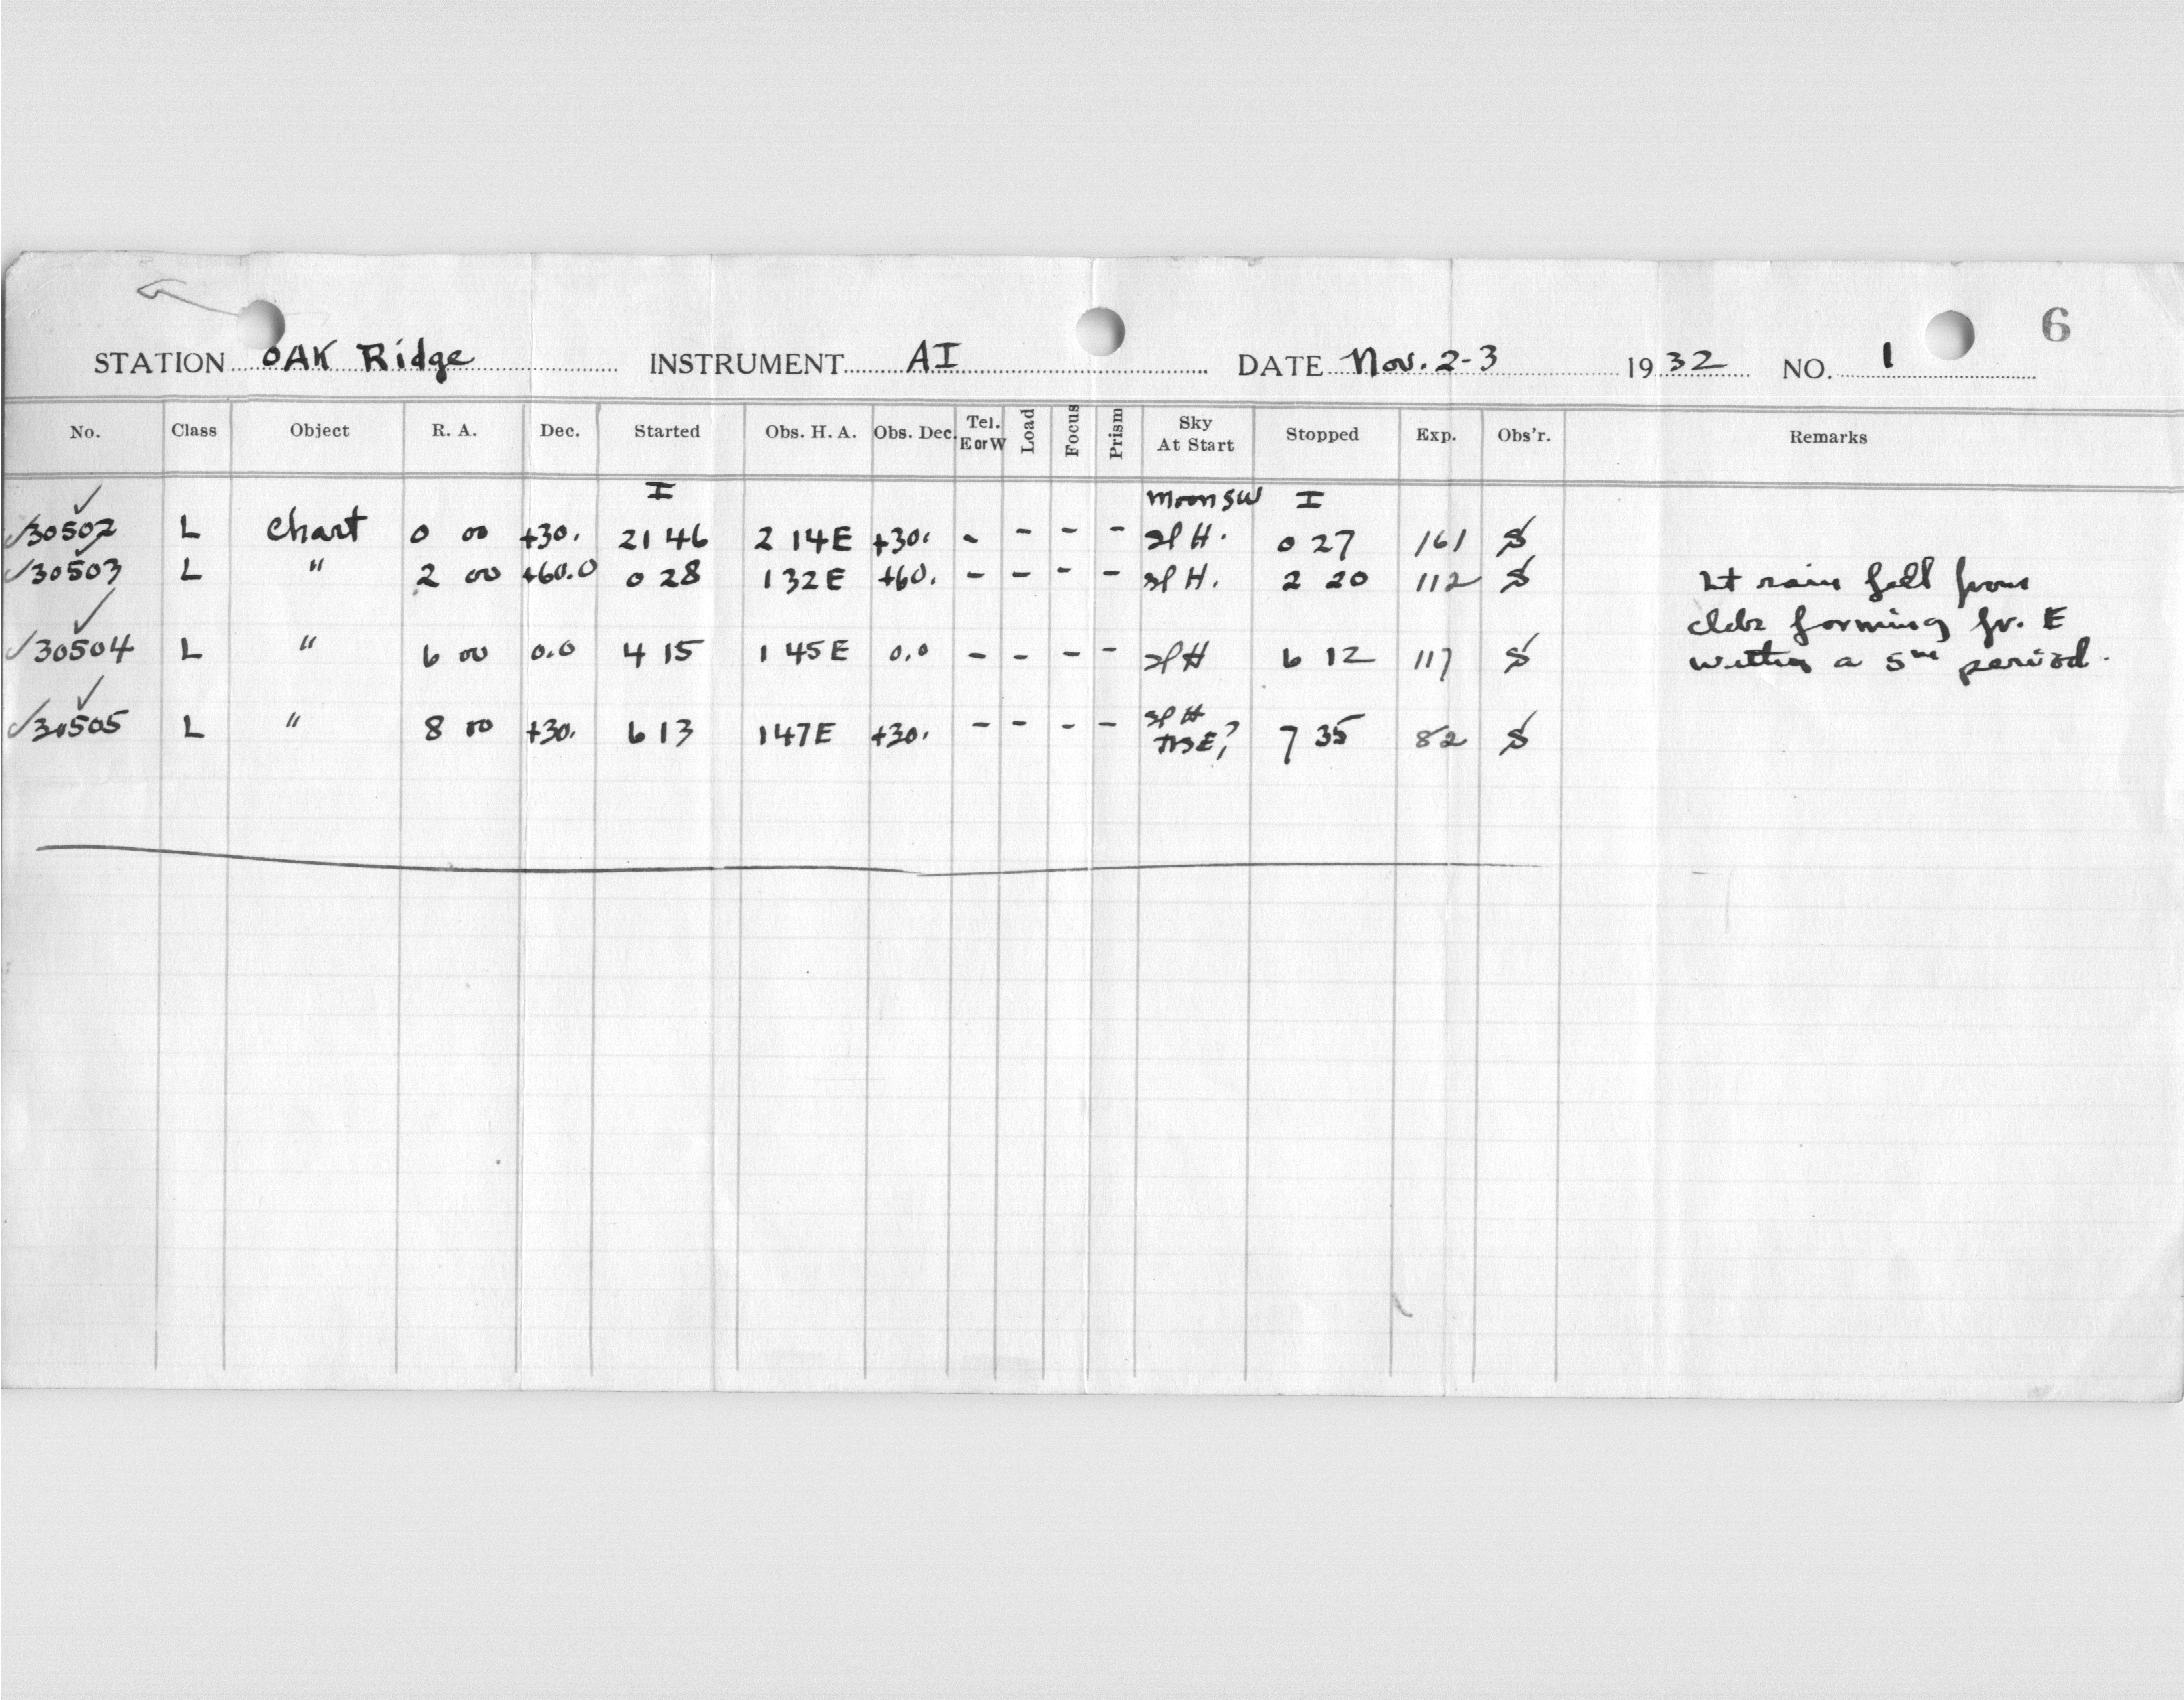 6
STATION OAK Ridge INSTRUMENT AI DATE Nov. 2-3 1932 NO. 1
No. Class Object R. A. Dec. Started Obs. H. A. Obs. Dec. Tel. E or W Load Focus Prism Sky At Start Stopped Exp. Obs'r. Remarks
I moon SW I
30502 L Chart 0 00 +30. 21 46 2 14E +30. - - - - sl H. 0 27 161 S
30503 L " 2 00 +60.0 0 28 1 32E +60. - - - - sl H. 2 20 112 S Lt rain fell from
clds forming fr. E
30504 L " 6 00 0.0 4 15 1 45E 0.0 - - - - sl H 6 12 117 S within a 5m period.
30505 L " 8 00 +30. 6 13 1 47E +30. - - - - sl H 7 35 82 S